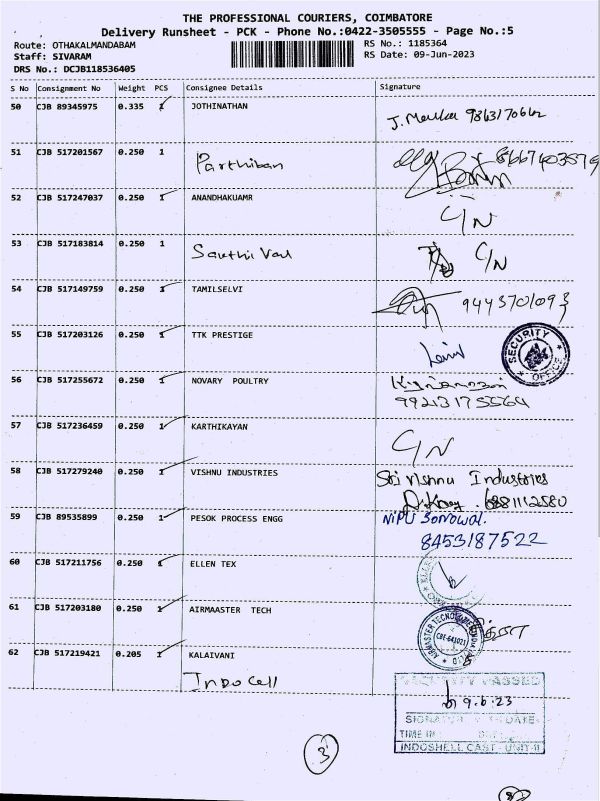 THE PROFESSIONAL COURIERS, COIMBATORE
Delivery Runsheet - PCK - Phone No.:0422-3505555 - Page No.:5
Route: OTHAKALMANDABAM
RS No.: 1185364
Staff: SIVARAM
RS Date: 09-Jun-2023
DRS No.: DCJB118536405
S No Consignment No Weight PCS Consignee Details Signature
50 CJB 89345975 0.335 1 JOTHINATHAN
51 CJB 517201567 0.250 1 Parthiban
52 CJB 517247037 0.250 1 ANANDHAKUAMR
C/N
53 CJB 517183814 0.250 1 C/N
54 CJB 517149759 0.250 1 TAMILSELVI
9443701093
55 CJB 517203126 0.250 1 TTK PRESTIGE
SECURITY OFFICE
56 CJB 517255672 0.250 1 NOVARY POULTRY
57 CJB 517236459 0.250 1 KARTHIKAYAN
C/N
58 CJB 517279240 0.250 1 VISHNU INDUSTRIES
Sri Vishnu Industries
59 CJB 89535899 0.250 1 PESOK PROCESS ENGG
NIPU Sonowal.
8453187522
60 CJB 517211756 0.250 1 ELLEN TEX
61 CJB 517203180 0.250 1 AIRMAASTER TECH
CBE-641021
62 CJB 517219421 0.205 1 KALAIVANI
Indocell
SECURITY PASSED
9.6.23
SIGNATURE DATE
TIME IN
INDOSHELL CAST - UNIT-II
3